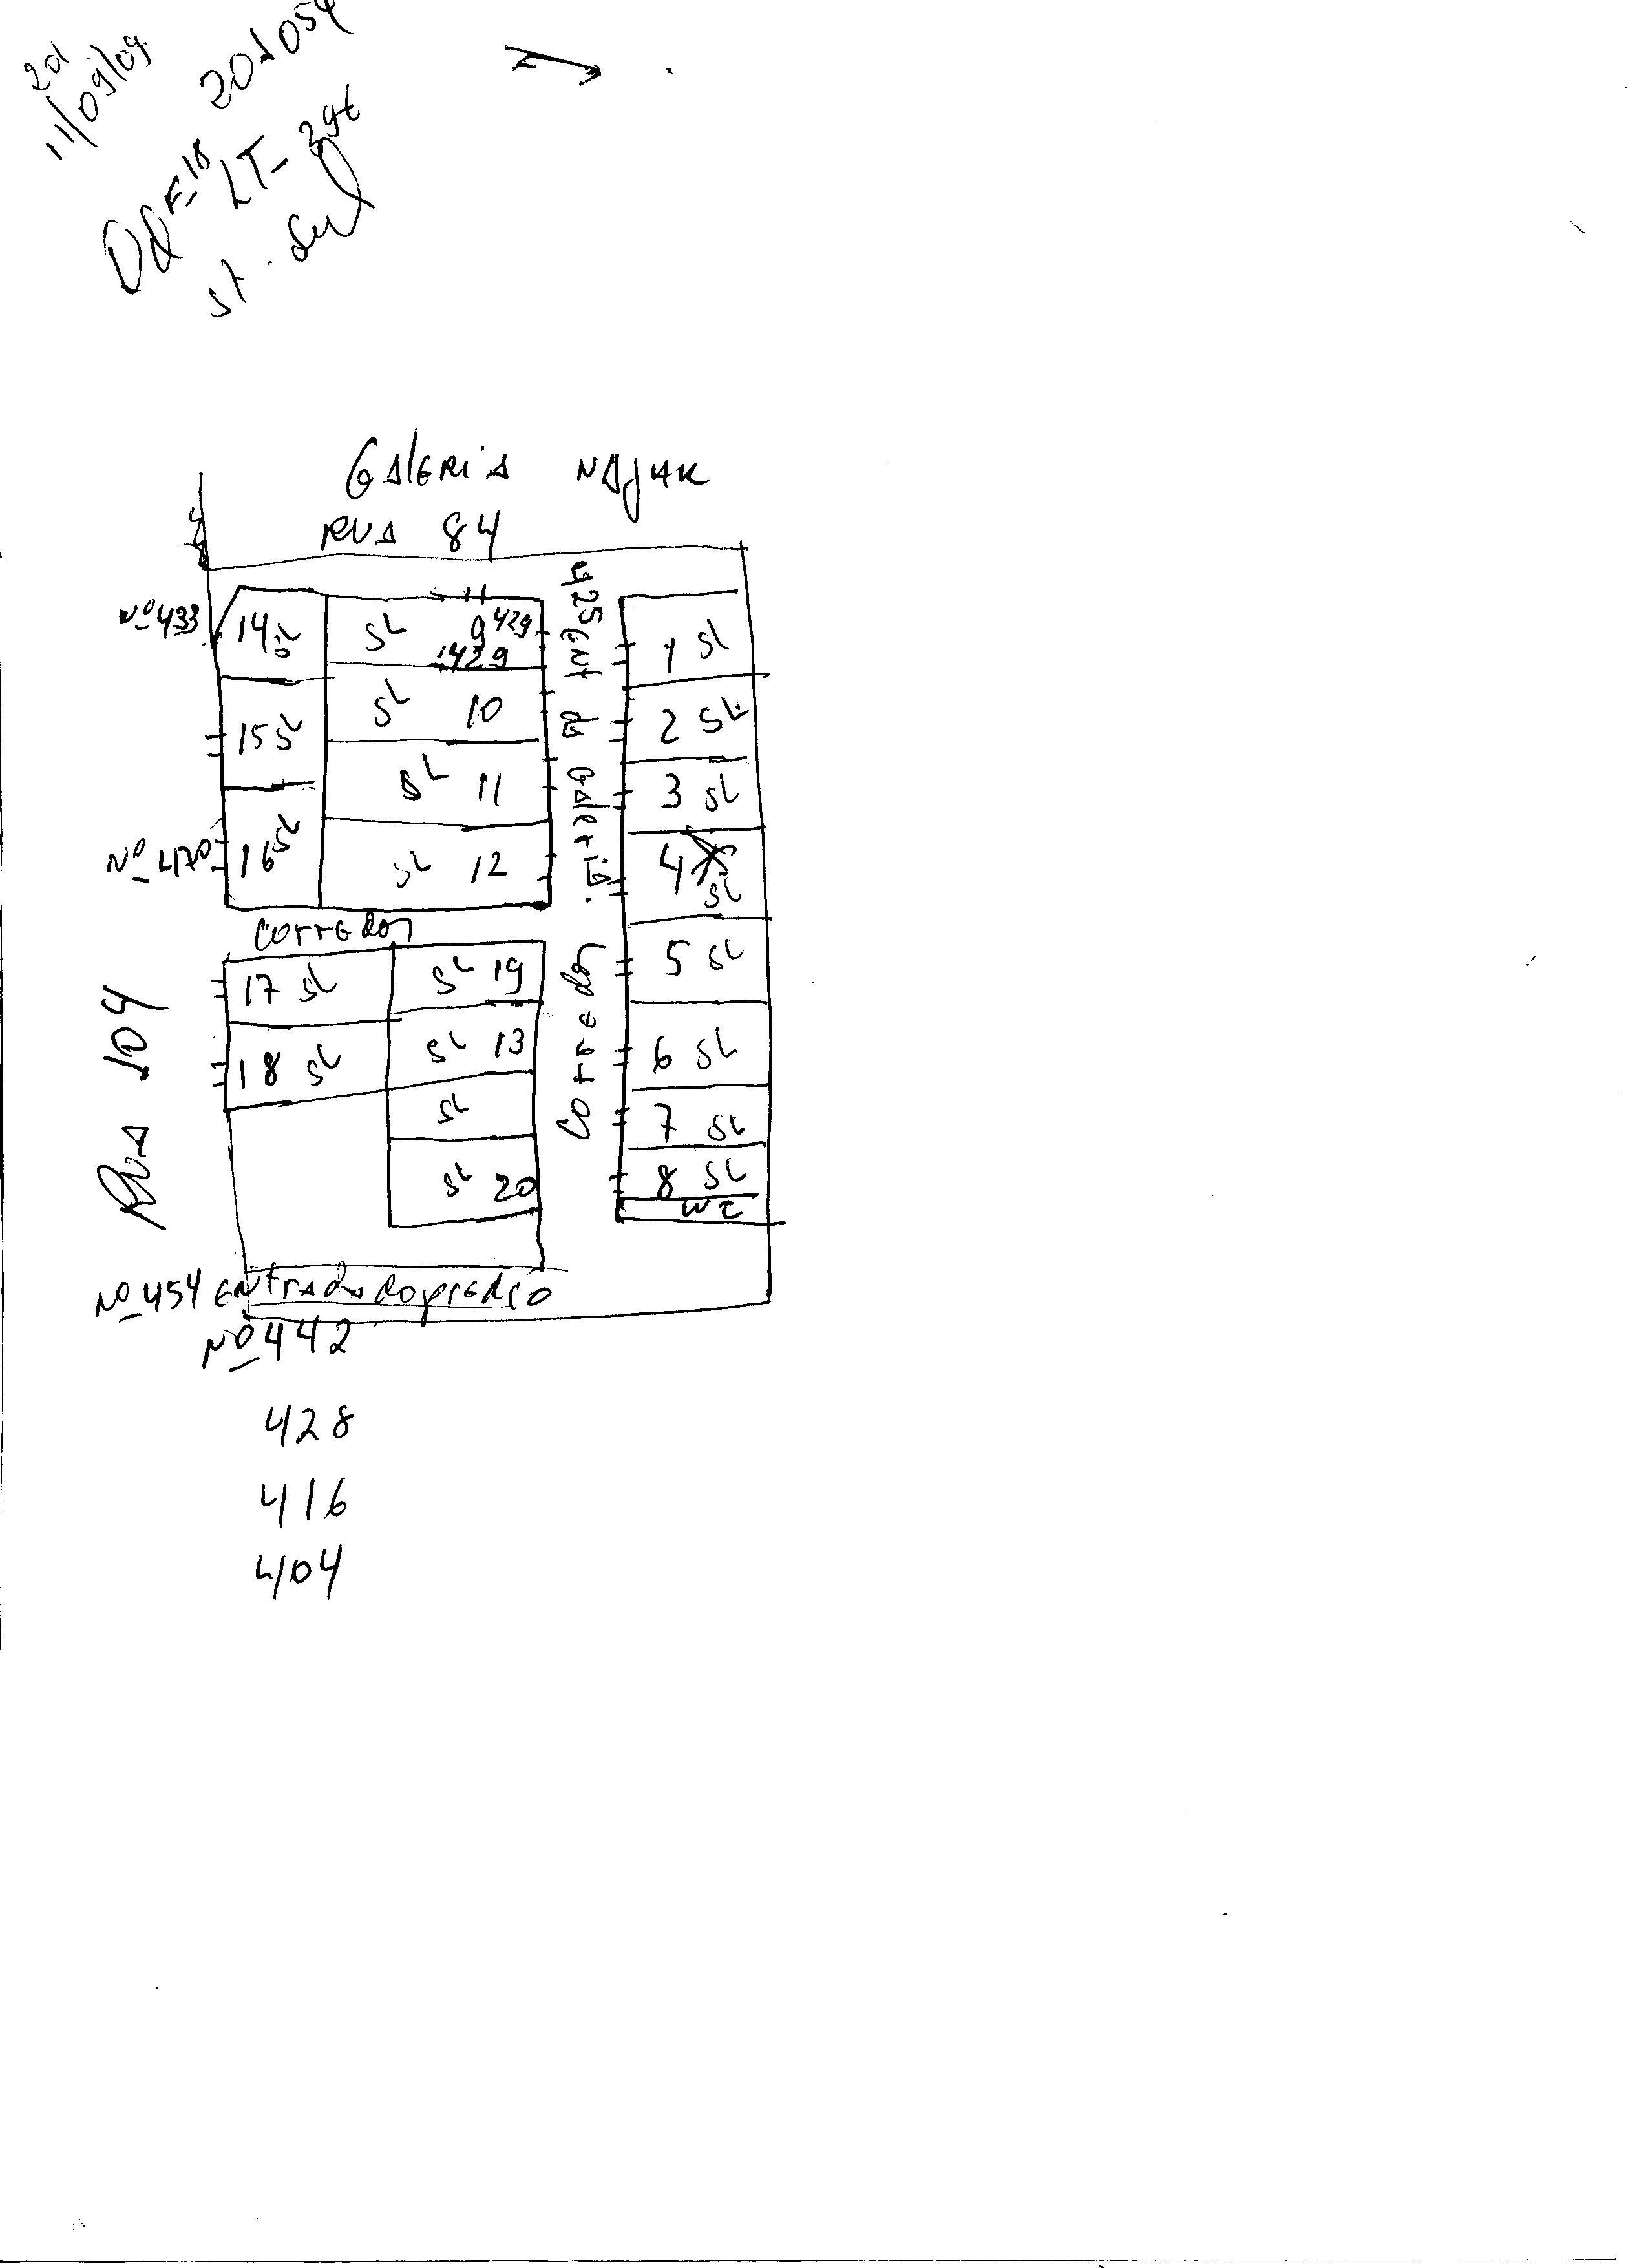 11/09/09
Qd F-18 LT-
St. Sul
GALERIA NAJAR
RUA 84
Nº 433
14 SL
SL 9 429
429
425 ENt da Galeria.
1 SL
15 SL
SL 10
2 SL
SL 11
3 SL
Nº 470
16 SL
SL 12
4 SL
corredor
17 SL
SL 19
5 SL
RUA 104
18 SL
SL 13
Corredor
6 SL
SL
7 SL
SL 20
8 SL
WC
Nº 454 entrada do predio
Nº 442
428
416
404